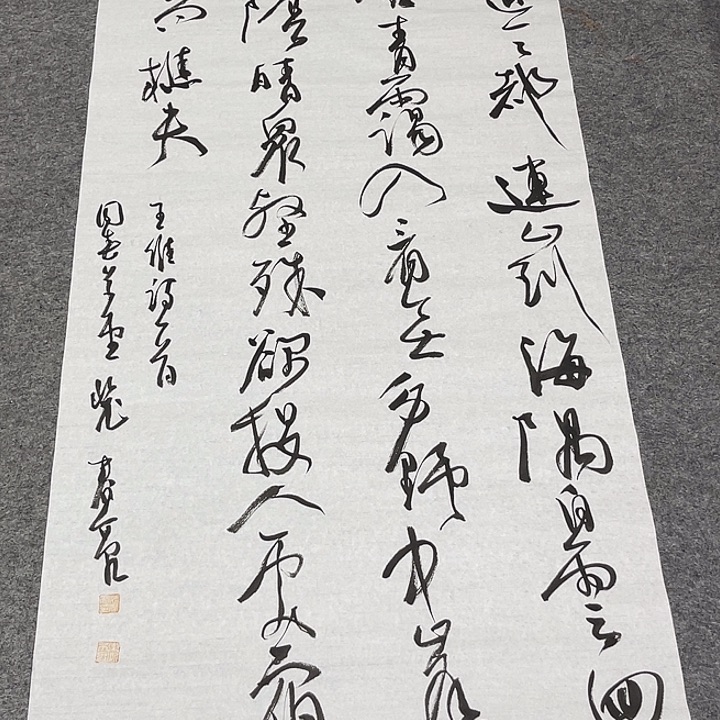 近天都連山到海隅白雲回
合青靄入看無分野中峰
陰晴眾壑殊欲投人處宿
問樵夫
王維詩一首